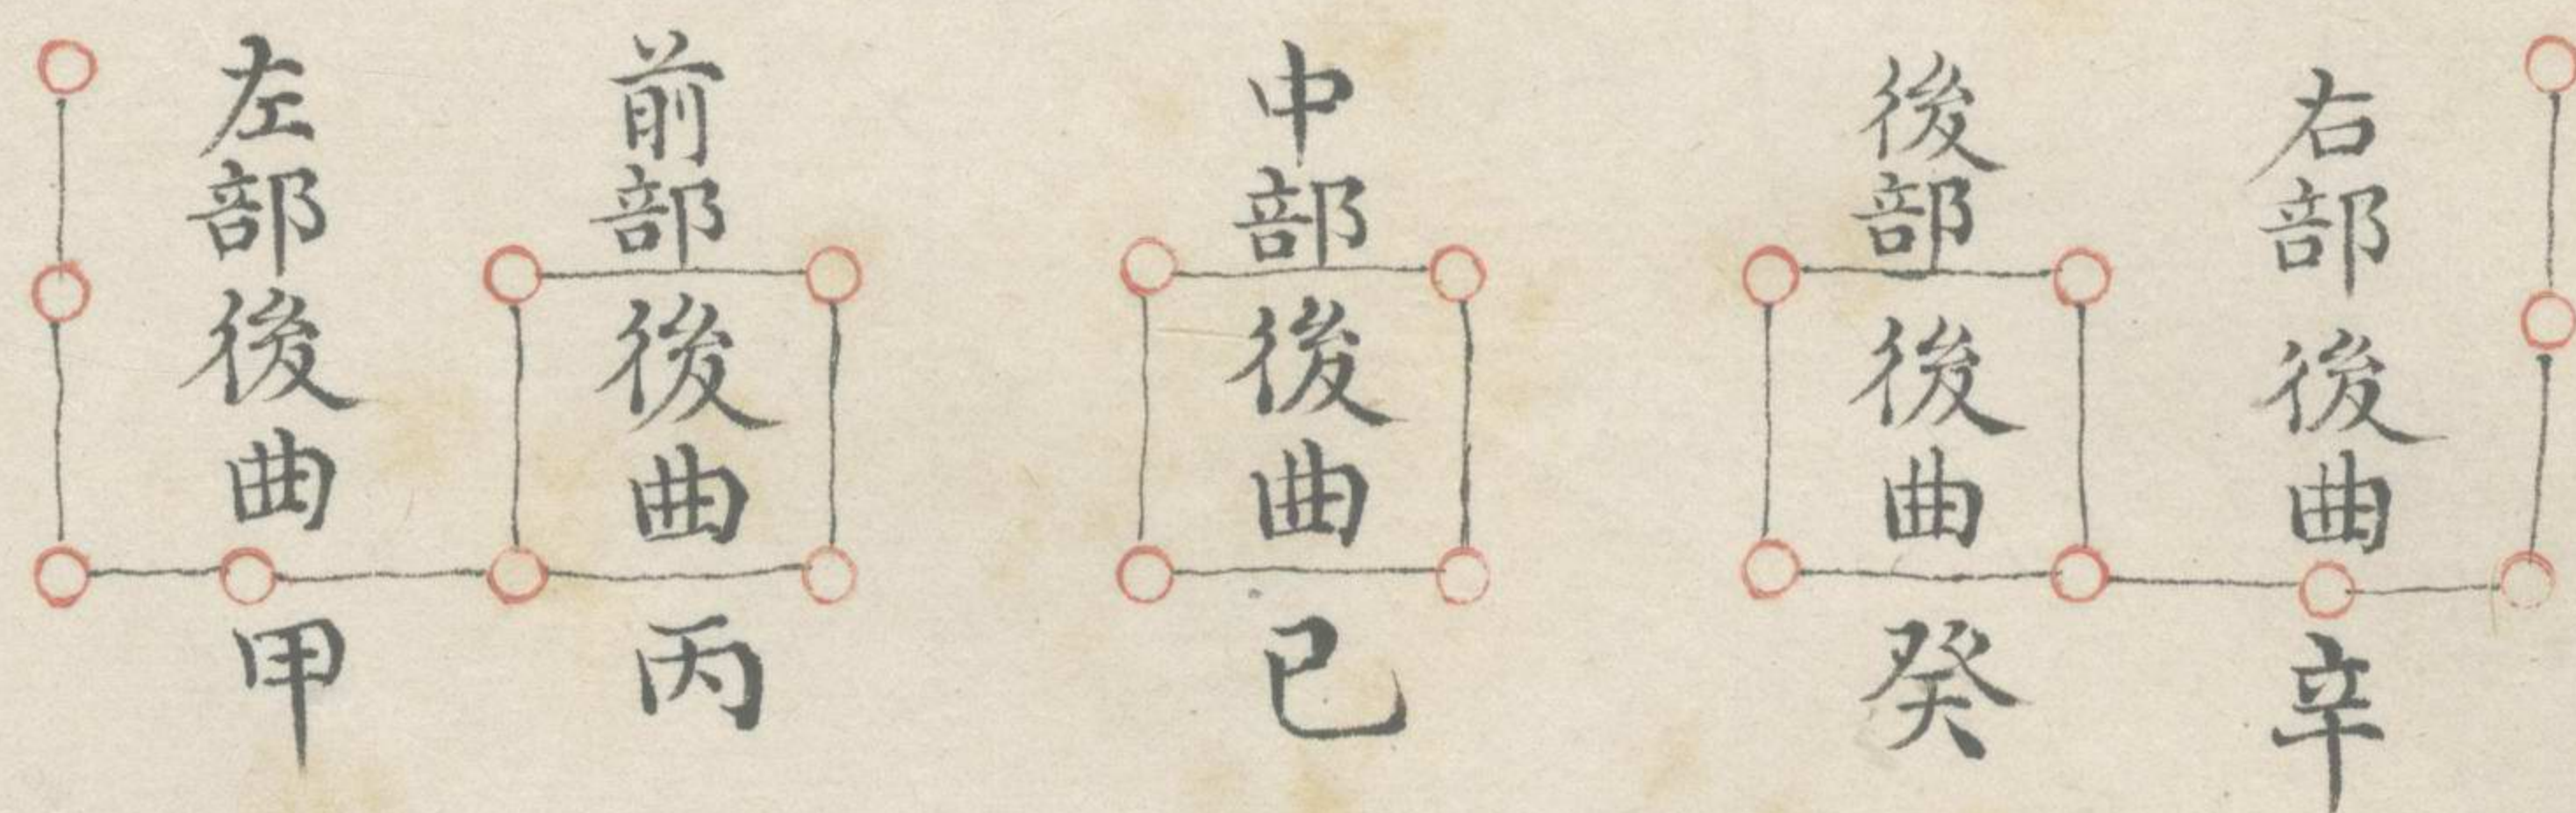 右部後曲辛
後部後曲癸
中部後曲已
前部後曲丙
左部後曲甲